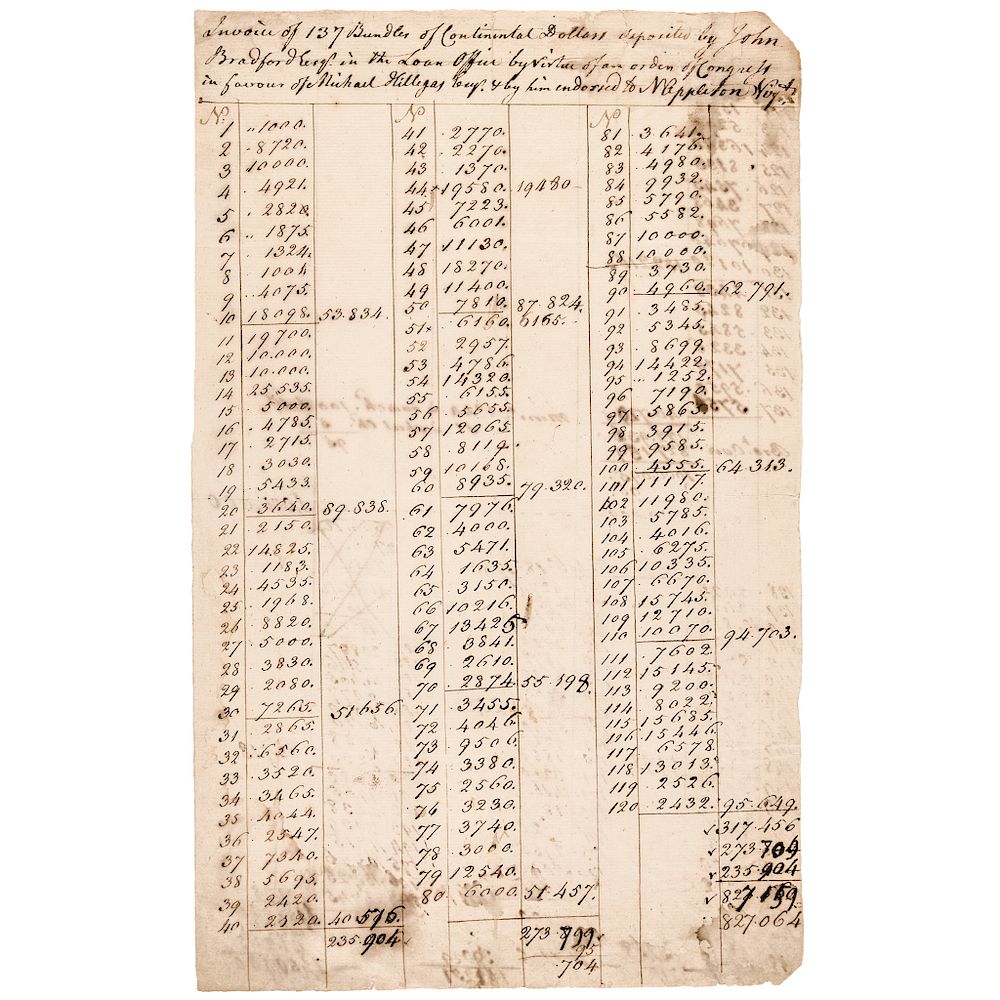 Invoice of 137 Bundles of Continental Dollars deposited by John
Bradford Esqr. in the Loan Office by Virtue of an order of Congress
in favour of Michael Hillegas Esqr. & by him endorsed to N Appleton
No.
1 1000.
2 .8720.
3 10000.
4 .4921.
5 .2820.
6 .1875.
7 .1324.
8 .1004
9 .4075.
10 18098. 53.834.
11 19700.
12 10.000.
13 10.000.
14 25.535.
15 .5000.
16 .4785.
17 .2715.
18 .3030.
19 .5433.
20 .3640. 89.838.
21 .2150.
22 14.825.
23 .1183.
24 .4535.
25 .1968.
26 .8820.
27 .5000.
28 .3830.
29 .2080.
30 .7265. 51656.
31 .2865.
32 .6560.
33 .3520.
34 .3465.
35 .4044.
36 .2547.
37 .7340.
38 .5695.
39 .2420.
40 .2120. 40576.
235.904
No.
41 .2770.
42 .2270.
43 .1370.
44 19580. 19480
45 .7223.
46 .6001.
47 11130.
48 18270.
49 11400.
50 .7810. 87.824.
51x .6160. 6165.
52 .2957.
53 .4786.
54 14320.
55 .6155.
56 .5655.
57 12065.
58 .8119.
59 10168.
60 .8935. 79.320.
61 .7976.
62 .4000.
63 .5471.
64 .1635.
65 .3150.
66 10216.
67 13425
68 .3841.
69 .2610.
70 .2874 55.198.
71 .3455.
72 .4046.
73 .9506.
74 .3380.
75 .2560.
76 .3230.
77 .3740.
78 .3000.
79 12540.
80 .6000. 51.457.
273.799
95
.704
No.
81 .3641.
82 .4176.
83 .4980.
84 .9932.
85 .5790.
86 .5582.
87 10000.
88 10000.
89 .3730.
90 .4960. 62.791.
91 .3485.
92 .5345.
93 .8699.
94 14422.
95 1252.
96 .7190.
97 .5865.
98 .3915.
99 .9585.
100 .4555. 64.313.
101 11117.
102 11980.
103 .5785.
104 .4016.
105 .6275.
106 10335.
107 .6670.
108 15745.
109 12710.
110 10070. 94.703.
111 .7602.
112 15145.
113 .9200.
114 .8022.
115 15685.
116 15446.
117 .6578.
118 13013.
119 .2526.
120 .2432. 95.649.
317.456
235.904
827.064